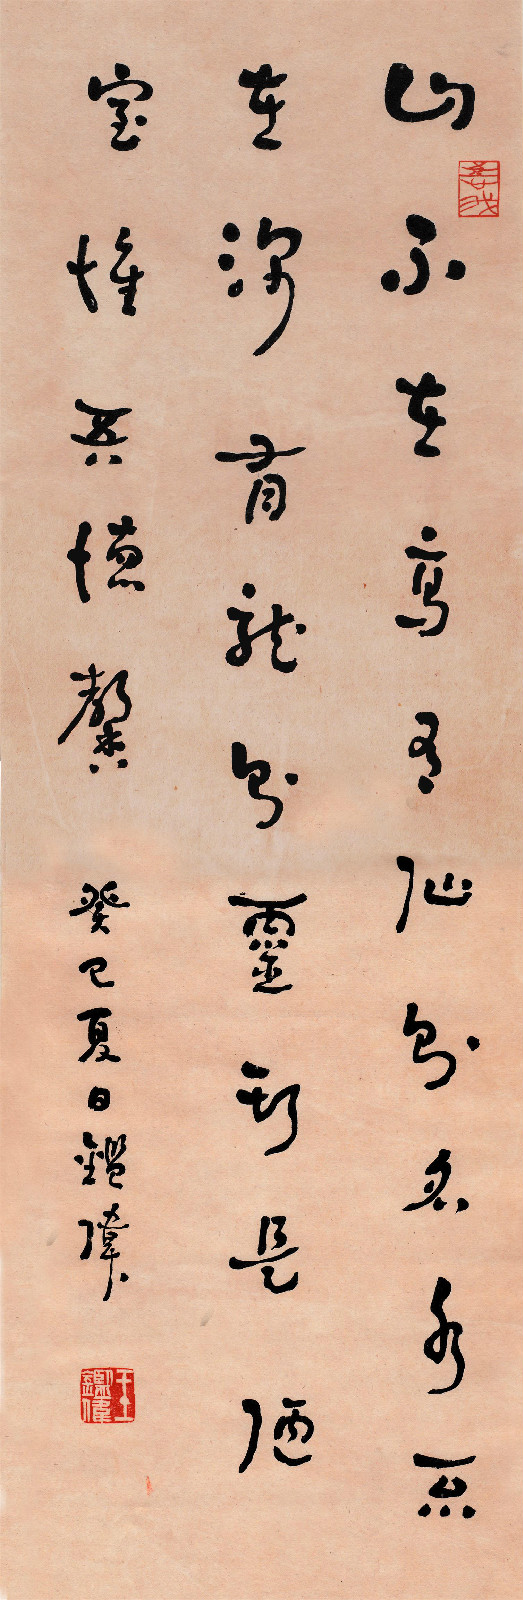 山不在高有仙則名水不
在深有龍則靈斯是陋
室惟吾德馨
癸巳夏日鑑偉
王鑑偉